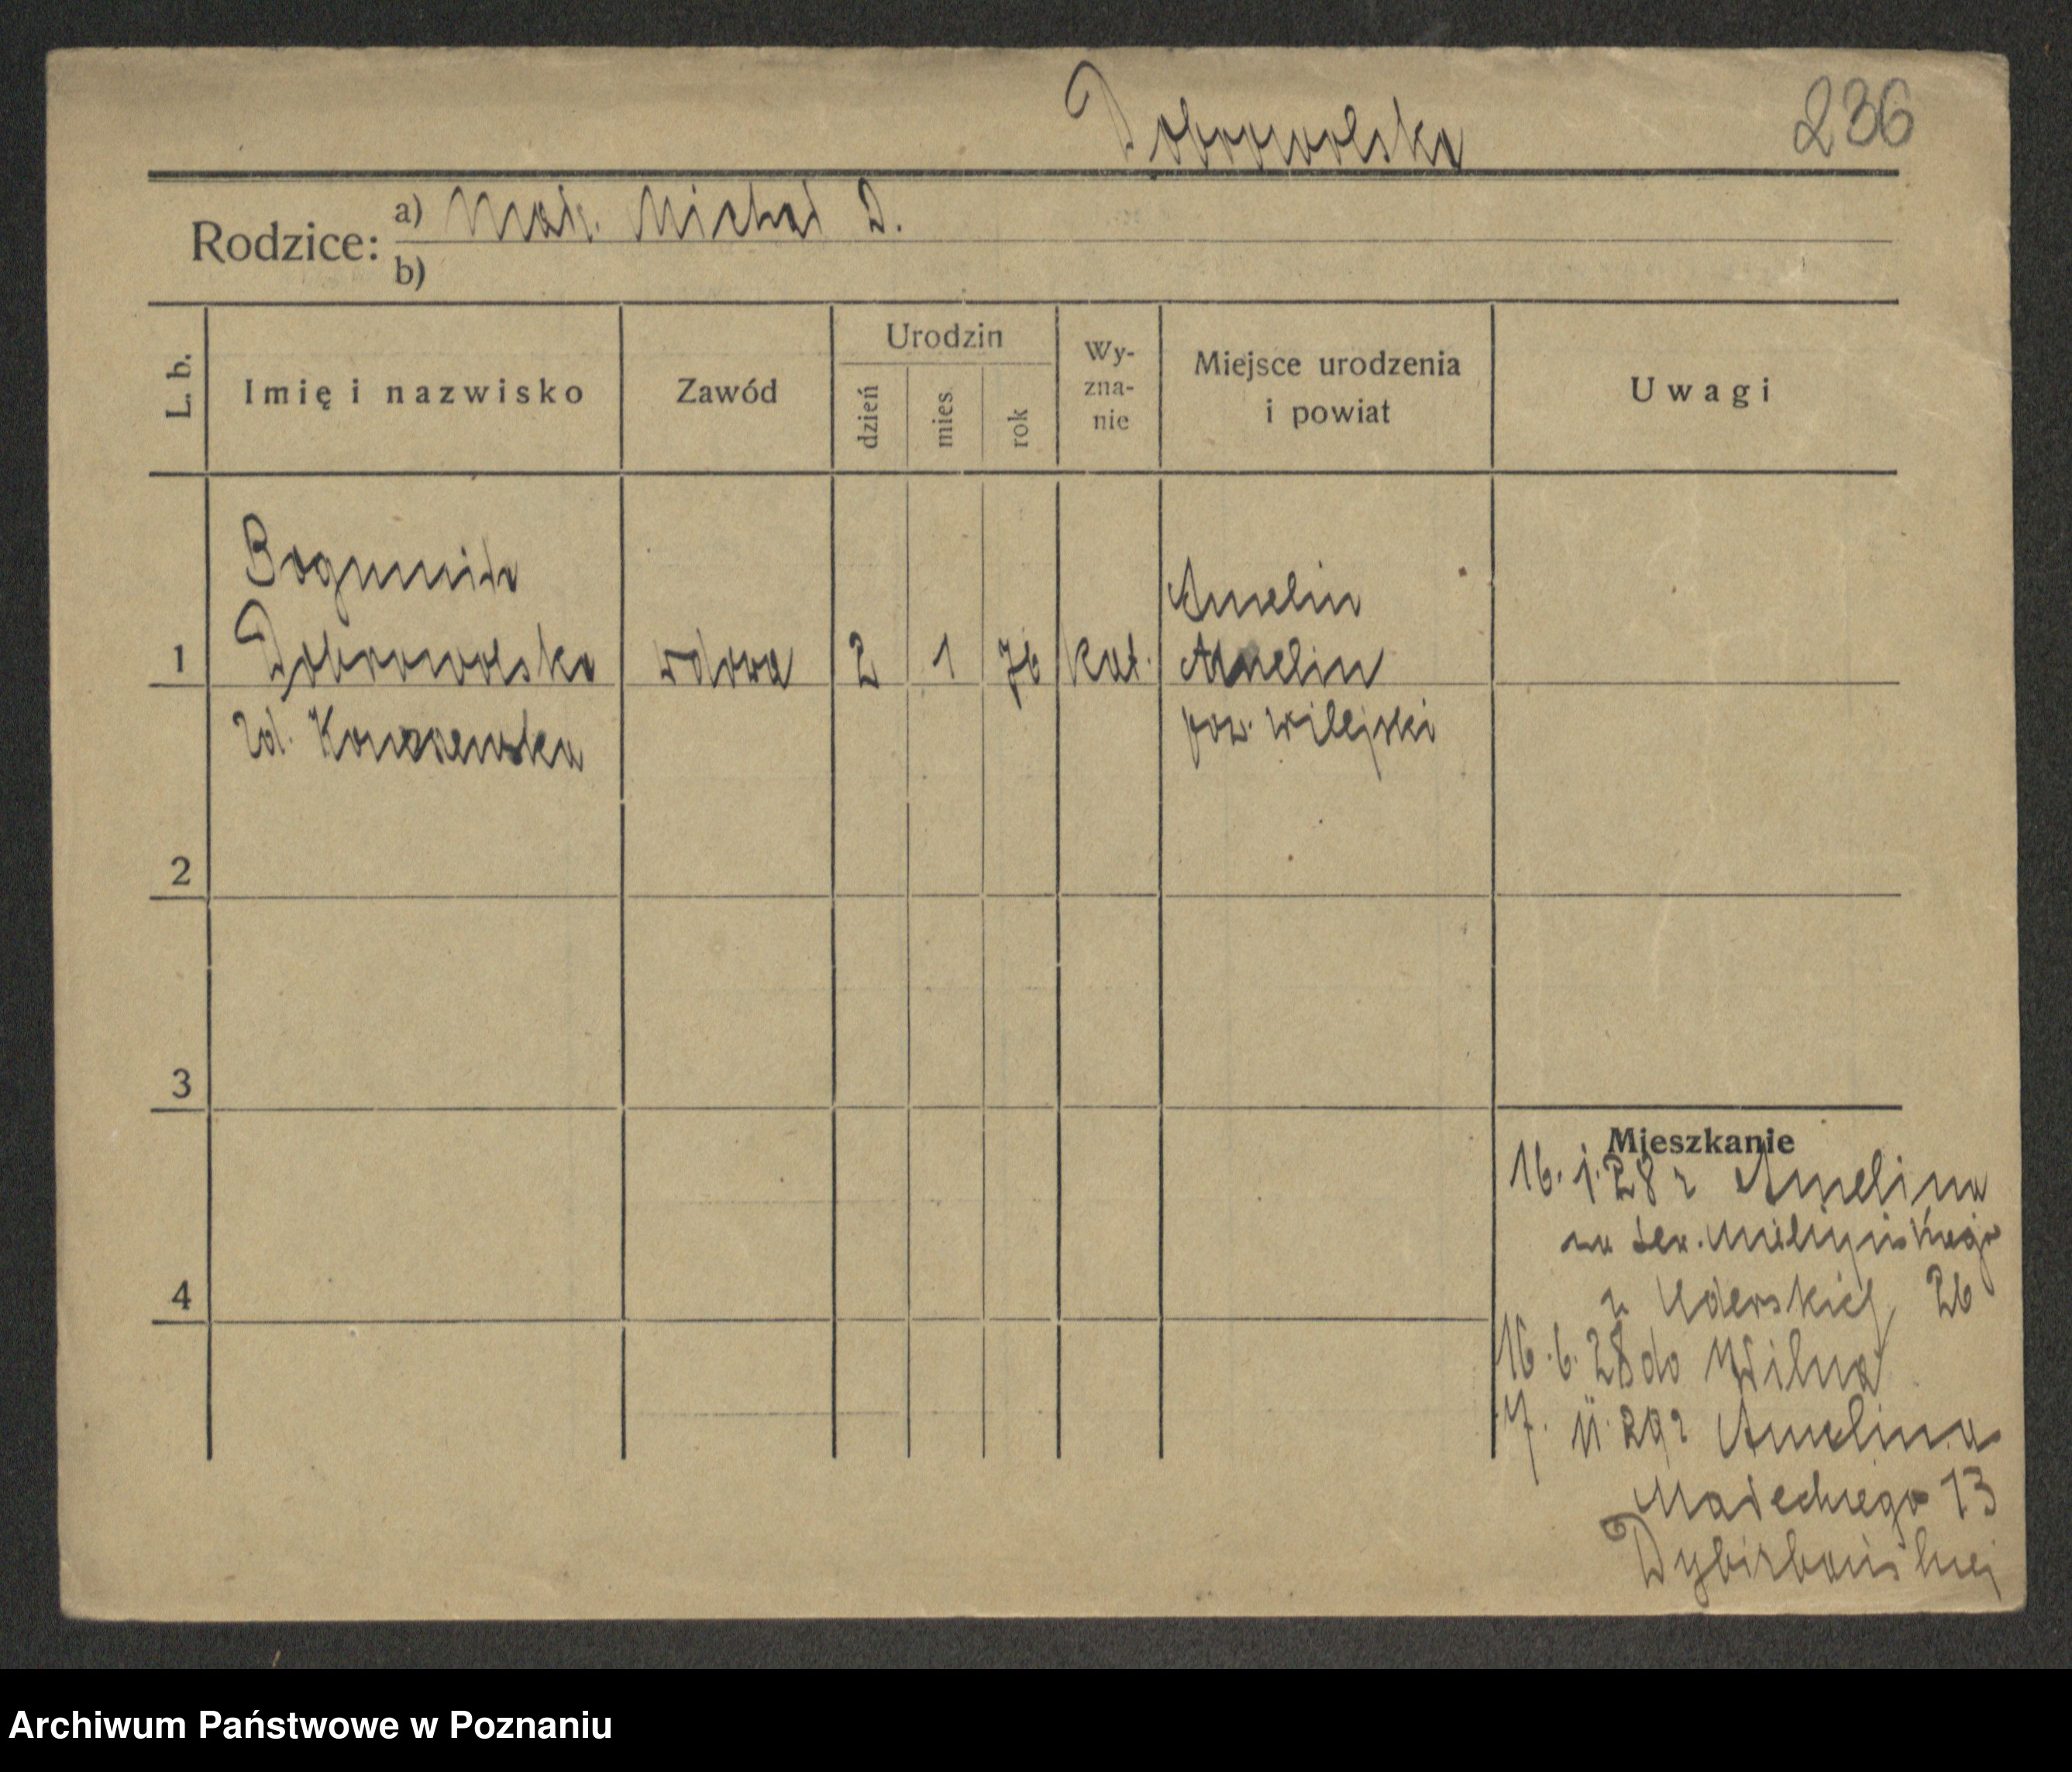 Dobrowolska 236
Rodzice: a) Mąż. Michał D.
b)
L. b.
Imię i nazwisko
Zawód
Urodzin
dzień
mies.
rok
Wy-
zna-
nie
Miejsce urodzenia
i powiat
Uwagi
Bogumiła
1 Dobrowolska wdowa 2 1 76 kat. Amelin
Amelin
zd. pow. wilejski
2
3
4
Mieszkanie
16. 1. 28 z Amelina
26
16. 6. 28 do Wilna
7. 11. 29 z Amelina
Małeckiego 13
Archiwum Państwowe w Poznaniu